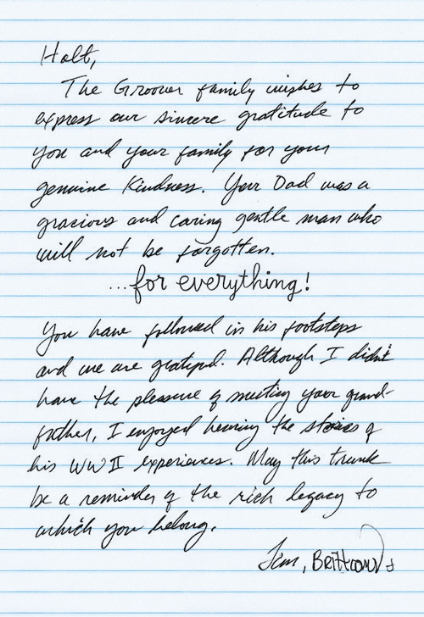 Holt,
The Groover family wishes to
express our sincere gratitude to
you and your family for your
genuine Kindness. Your Dad was a
gracious and caring gentle man who
will not be forgotten.
...for everything!
You have followed in his footsteps
and we are grateful. Although I didn't
have the pleasure of meeting your grand-
father, I enjoyed hearing the stories of
his WWII experiences. May this trunk
be a reminder of the rich legacy to
which you belong.